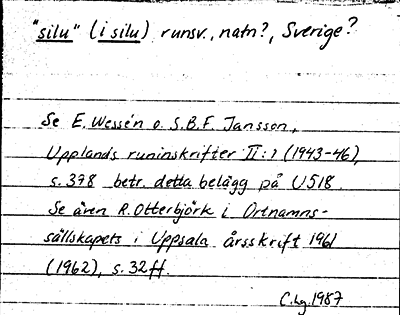 "silu" (i silu) runsv., natn?, Sverige?
Se E. Wessén o. S.B.F. Jansson,
Upplands runinskrifter II:1 (1943-46),
s. 378 betr. detta belägg på U518.
Se även R. Otterbjörk i Ortnamns-
sällskapets i Uppsala årsskrift 1961
(1962), s. 32ff.
C.hg. 1987